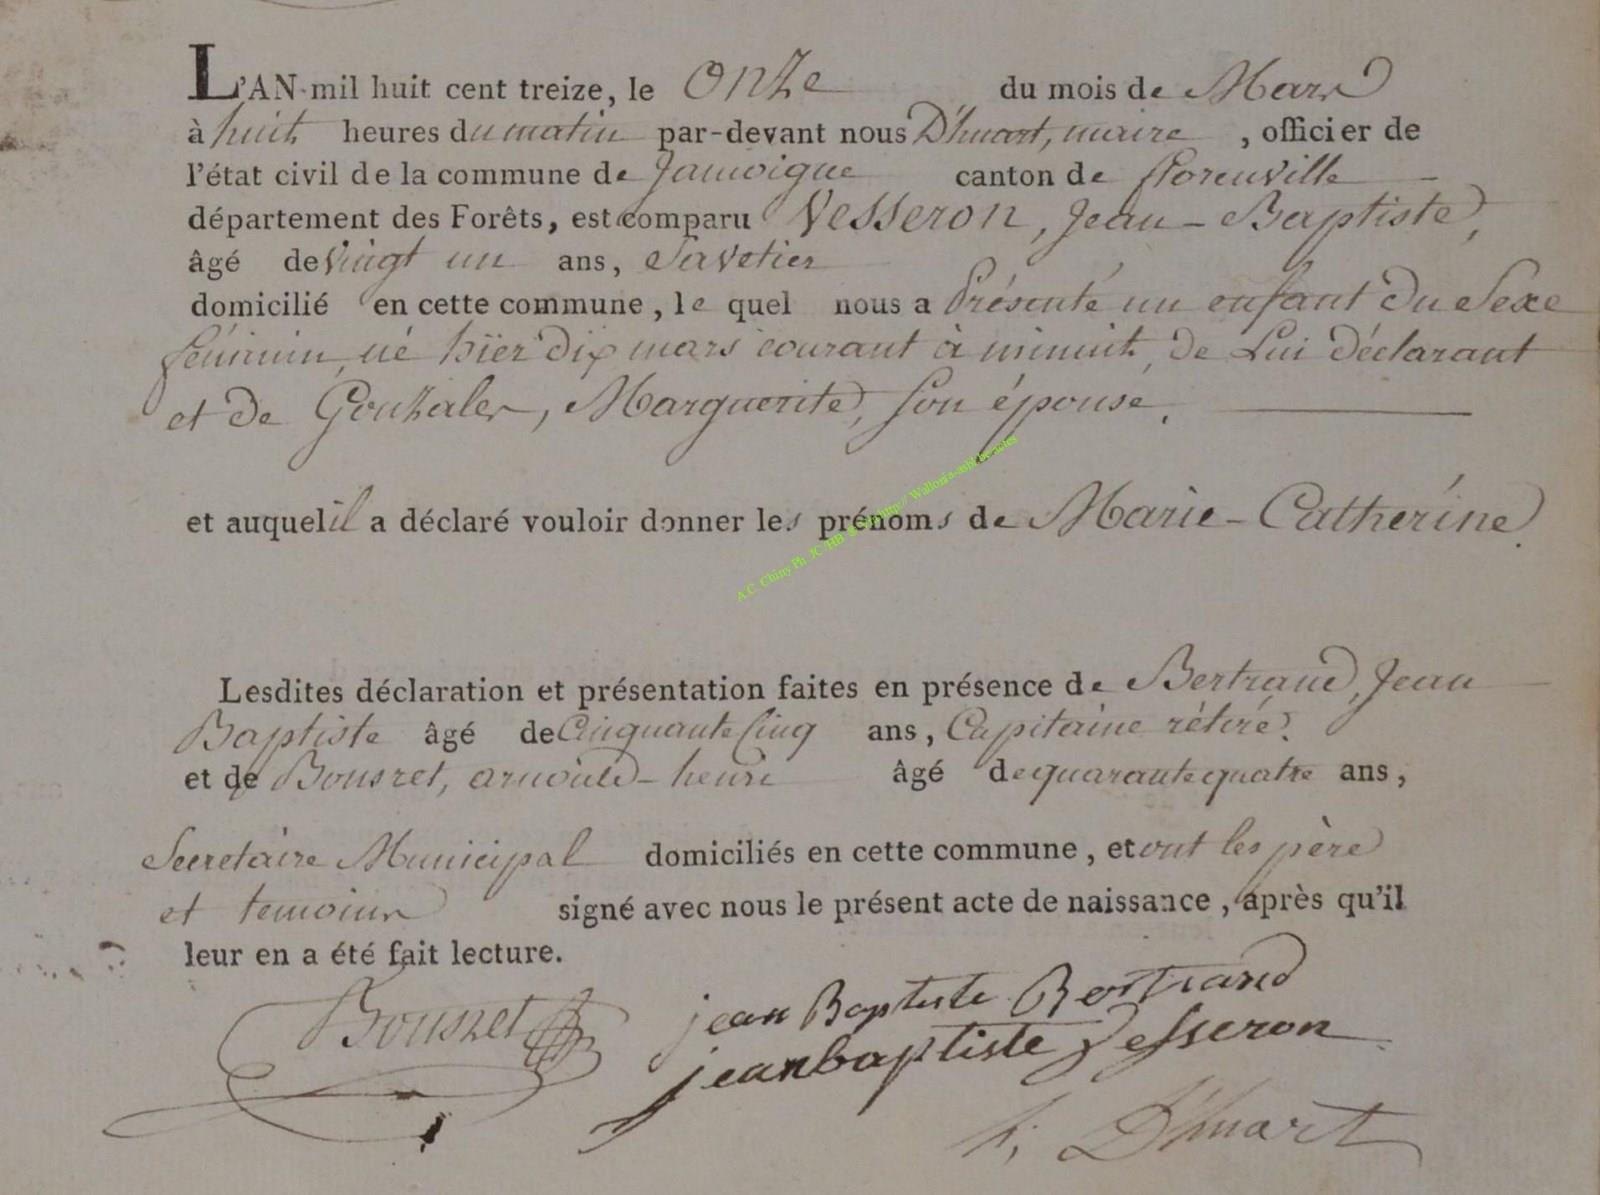 L'AN mil huit cent treize, le Onze du mois de Mars
à huit heures du matin par-devant nous D'huart, maire, officier de
l'état civil de la commune de Jamoigne canton de florenville
département des Forêts, est comparu Vesseron, Jean-Baptiste,
âgé de Vingt un ans, Savetier
domicilié en cette commune, le quel nous a Présenté un enfant du Sexe
féminin, né hier dix mars courant à minuit, de Lui déclarant
et de Gonzales, Marguerite, son épouse.
et auquel il a déclaré vouloir donner les prénoms de Marie-Catherine.
Lesdites déclaration et présentation faites en présence de Bertrand, Jean
Baptiste âgé de Cinquante Cinq ans, Capitaine rétiré.
et de Bousret, arnould-henri âgé de quarante quatre ans,
Secretaire Municipal domiciliés en cette commune, et ont les père
et temoins signé avec nous le présent acte de naissance, après qu'il
leur en a été fait lecture.
Bousret jean Baptiste Bertrand
jeanbaptiste Vesseron
h. D'huart
A.C. Chiny Ph. JC HB http:// Wallonia-asbl.be/actes